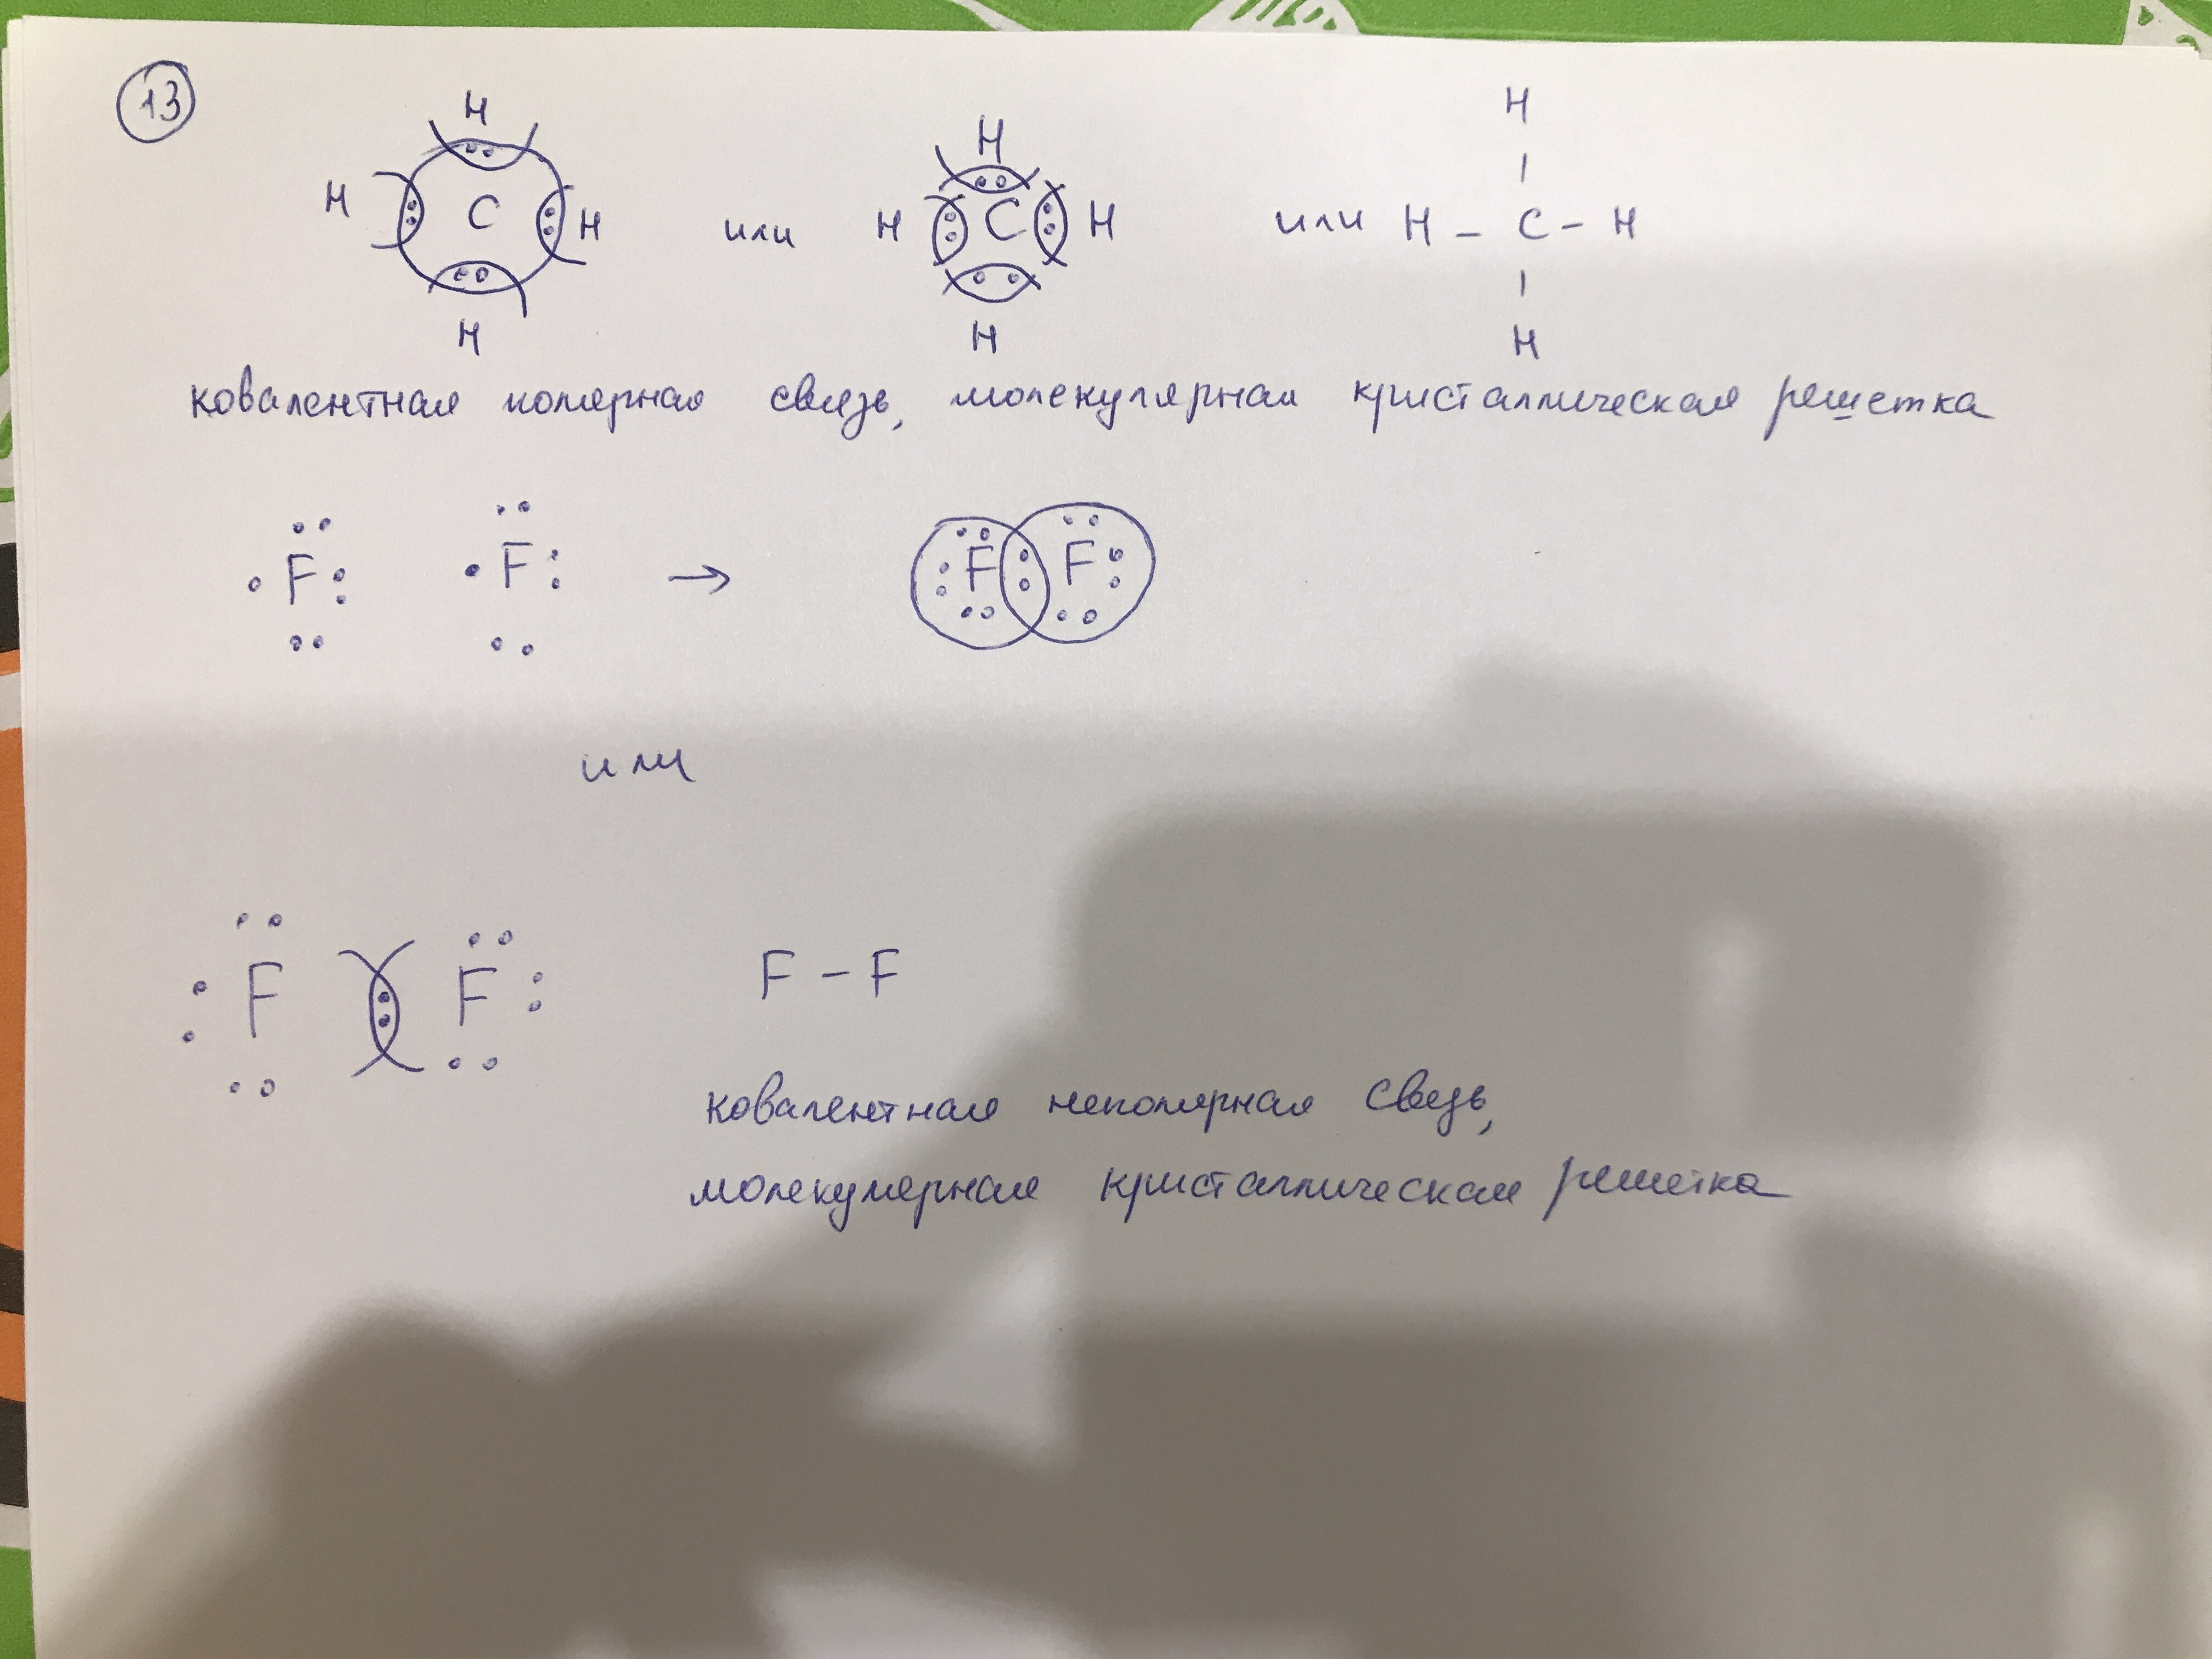 13
H
H C H
H
или
H
H C H
H
или
H
H – C – H
H
ковалентная полярная связь, молекулярная кристаллическая решетка
F F → F F
или
F F F – F
ковалентная неполярная связь,
молекулярная кристаллическая решетка